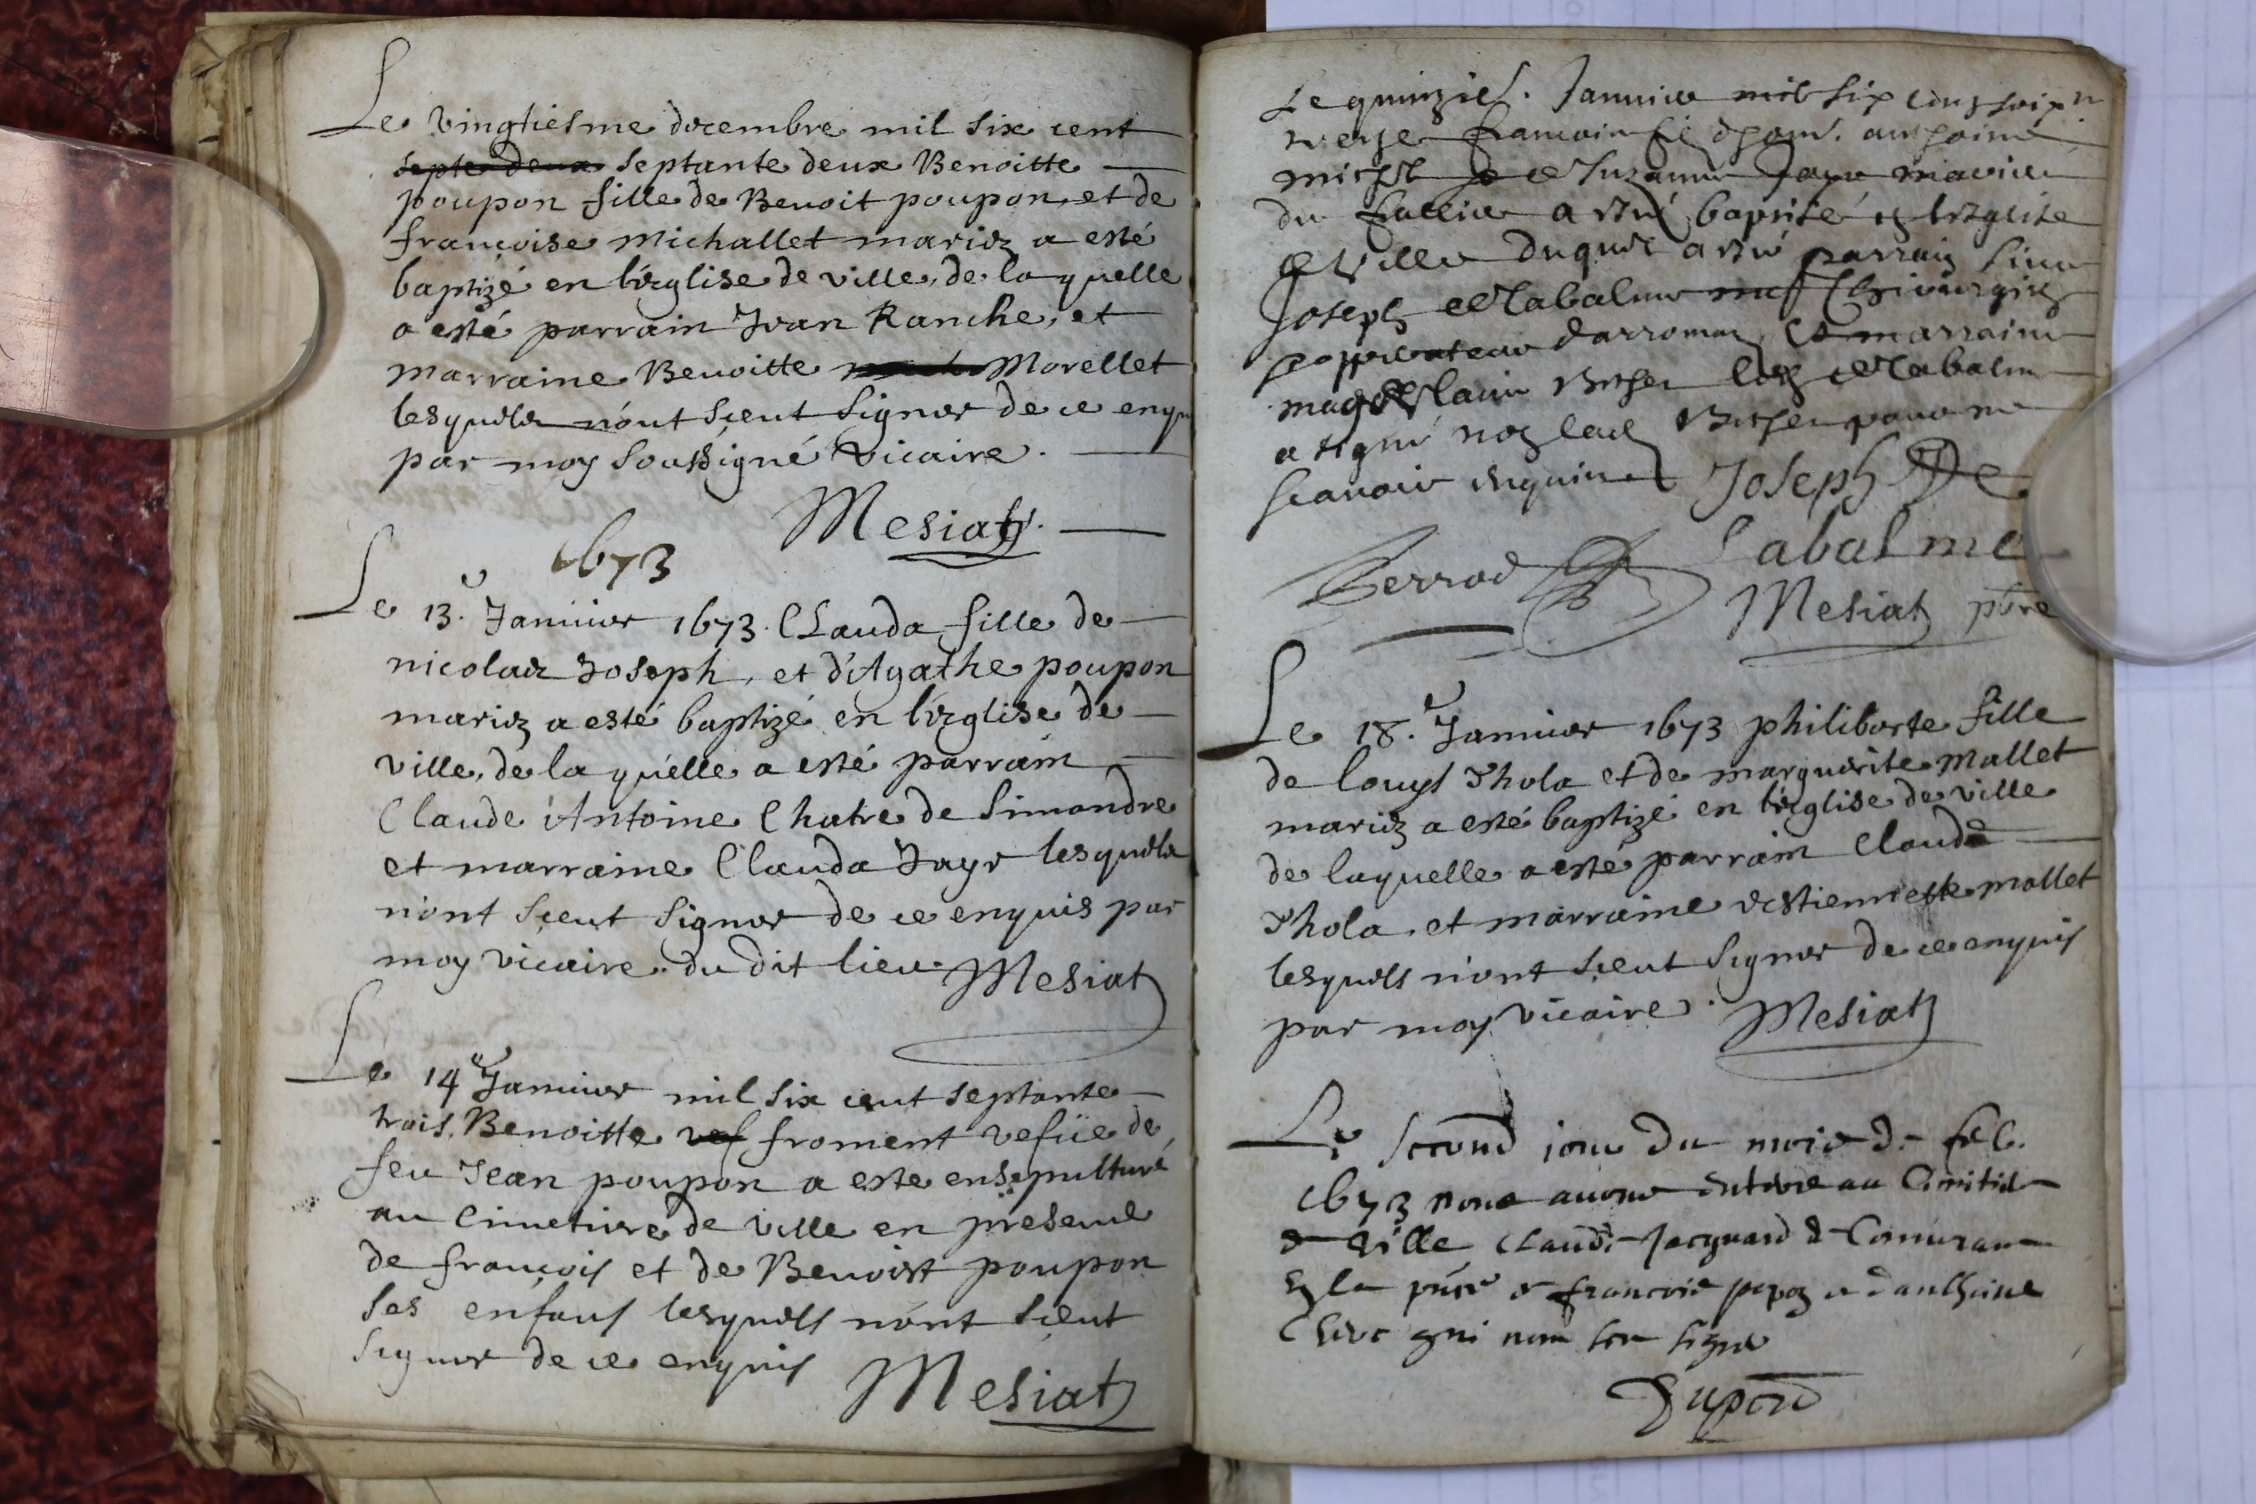 Le vingtiesme decembre mil six cent
septe deux septante deux Benoitte
poupon fille de Benoit poupon et de
françoise Michallet mariez a esté
baptizé en l'eglise de ville, de laquelle
a esté parrain Jean Ranche, et
marraine Benoitte Morellet
lesquels n'ont sceut signer de ce enqu
par moy soussigné vicaire.
Mesiat
1673
Le 13. Januier 1673. Clauda fille de
nicolaz Joseph, et d'Agathe poupon
mariez a esté baptizé en l'eglise de
ville, de laquelle a esté parrain
Claude Antoine Chatre de Simandre
et marraine Clauda Jayr lesquels
n'ont sceut signer de ce enquis par
moy vicaire du dit lieu Mesiat
Le 14 Januier mil six cent septante
trois. Benoitte vef froment vefüe de
feu Jean poupon a este ensepulturé
au cimetiere de ville en presence
de françois et de Benoist poupon
ses enfans lesquels n'ont sceut
signer de ce enquis Mesiat
Le quinzies. Januier mil six cens
treize francois fil
michel Suzanne Jayr mariez
du a esté baptisé en l'eglise
de ville duquel a esté parrain sieur
Joseph Delabalme chirurgien
darromaz et marraine
magdelaine Delabalme
a signé non lad. pour ne
scavoir enquise Joseph De
Labalme
Perrod Mesiat pbre
Le 18. Januier 1673 philiberte fille
de louys Thola et de marguerite Mallet
mariez a esté baptizé en l'eglise de ville
de laquelle a esté parrain Claude
Thola, et marraine estiennette mollet
lesquels n'ont sceut signer de ce enquis
par moy vicaire. Mesiat
Le second jour du mois de feb.
1673 nous auons enterre au Cimitiere
de Ville Claude Jacquard de
En la pnce de francois et danthoine
Clerc qui nont sceu signer
Dupord